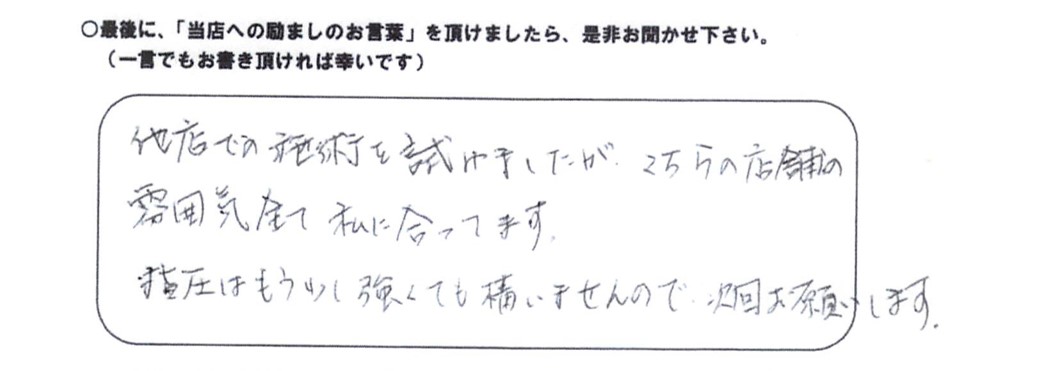 ○最後に、「当店への励ましのお言葉」を頂けましたら、是非お聞かせ下さい。
（一言でもお書き頂ければ幸いです）
他店での施術を試けましたが、こちらの店舗の
雰囲気全て私に合ってます。
指圧はもう少し強くても構いませんので、次回お願いします。